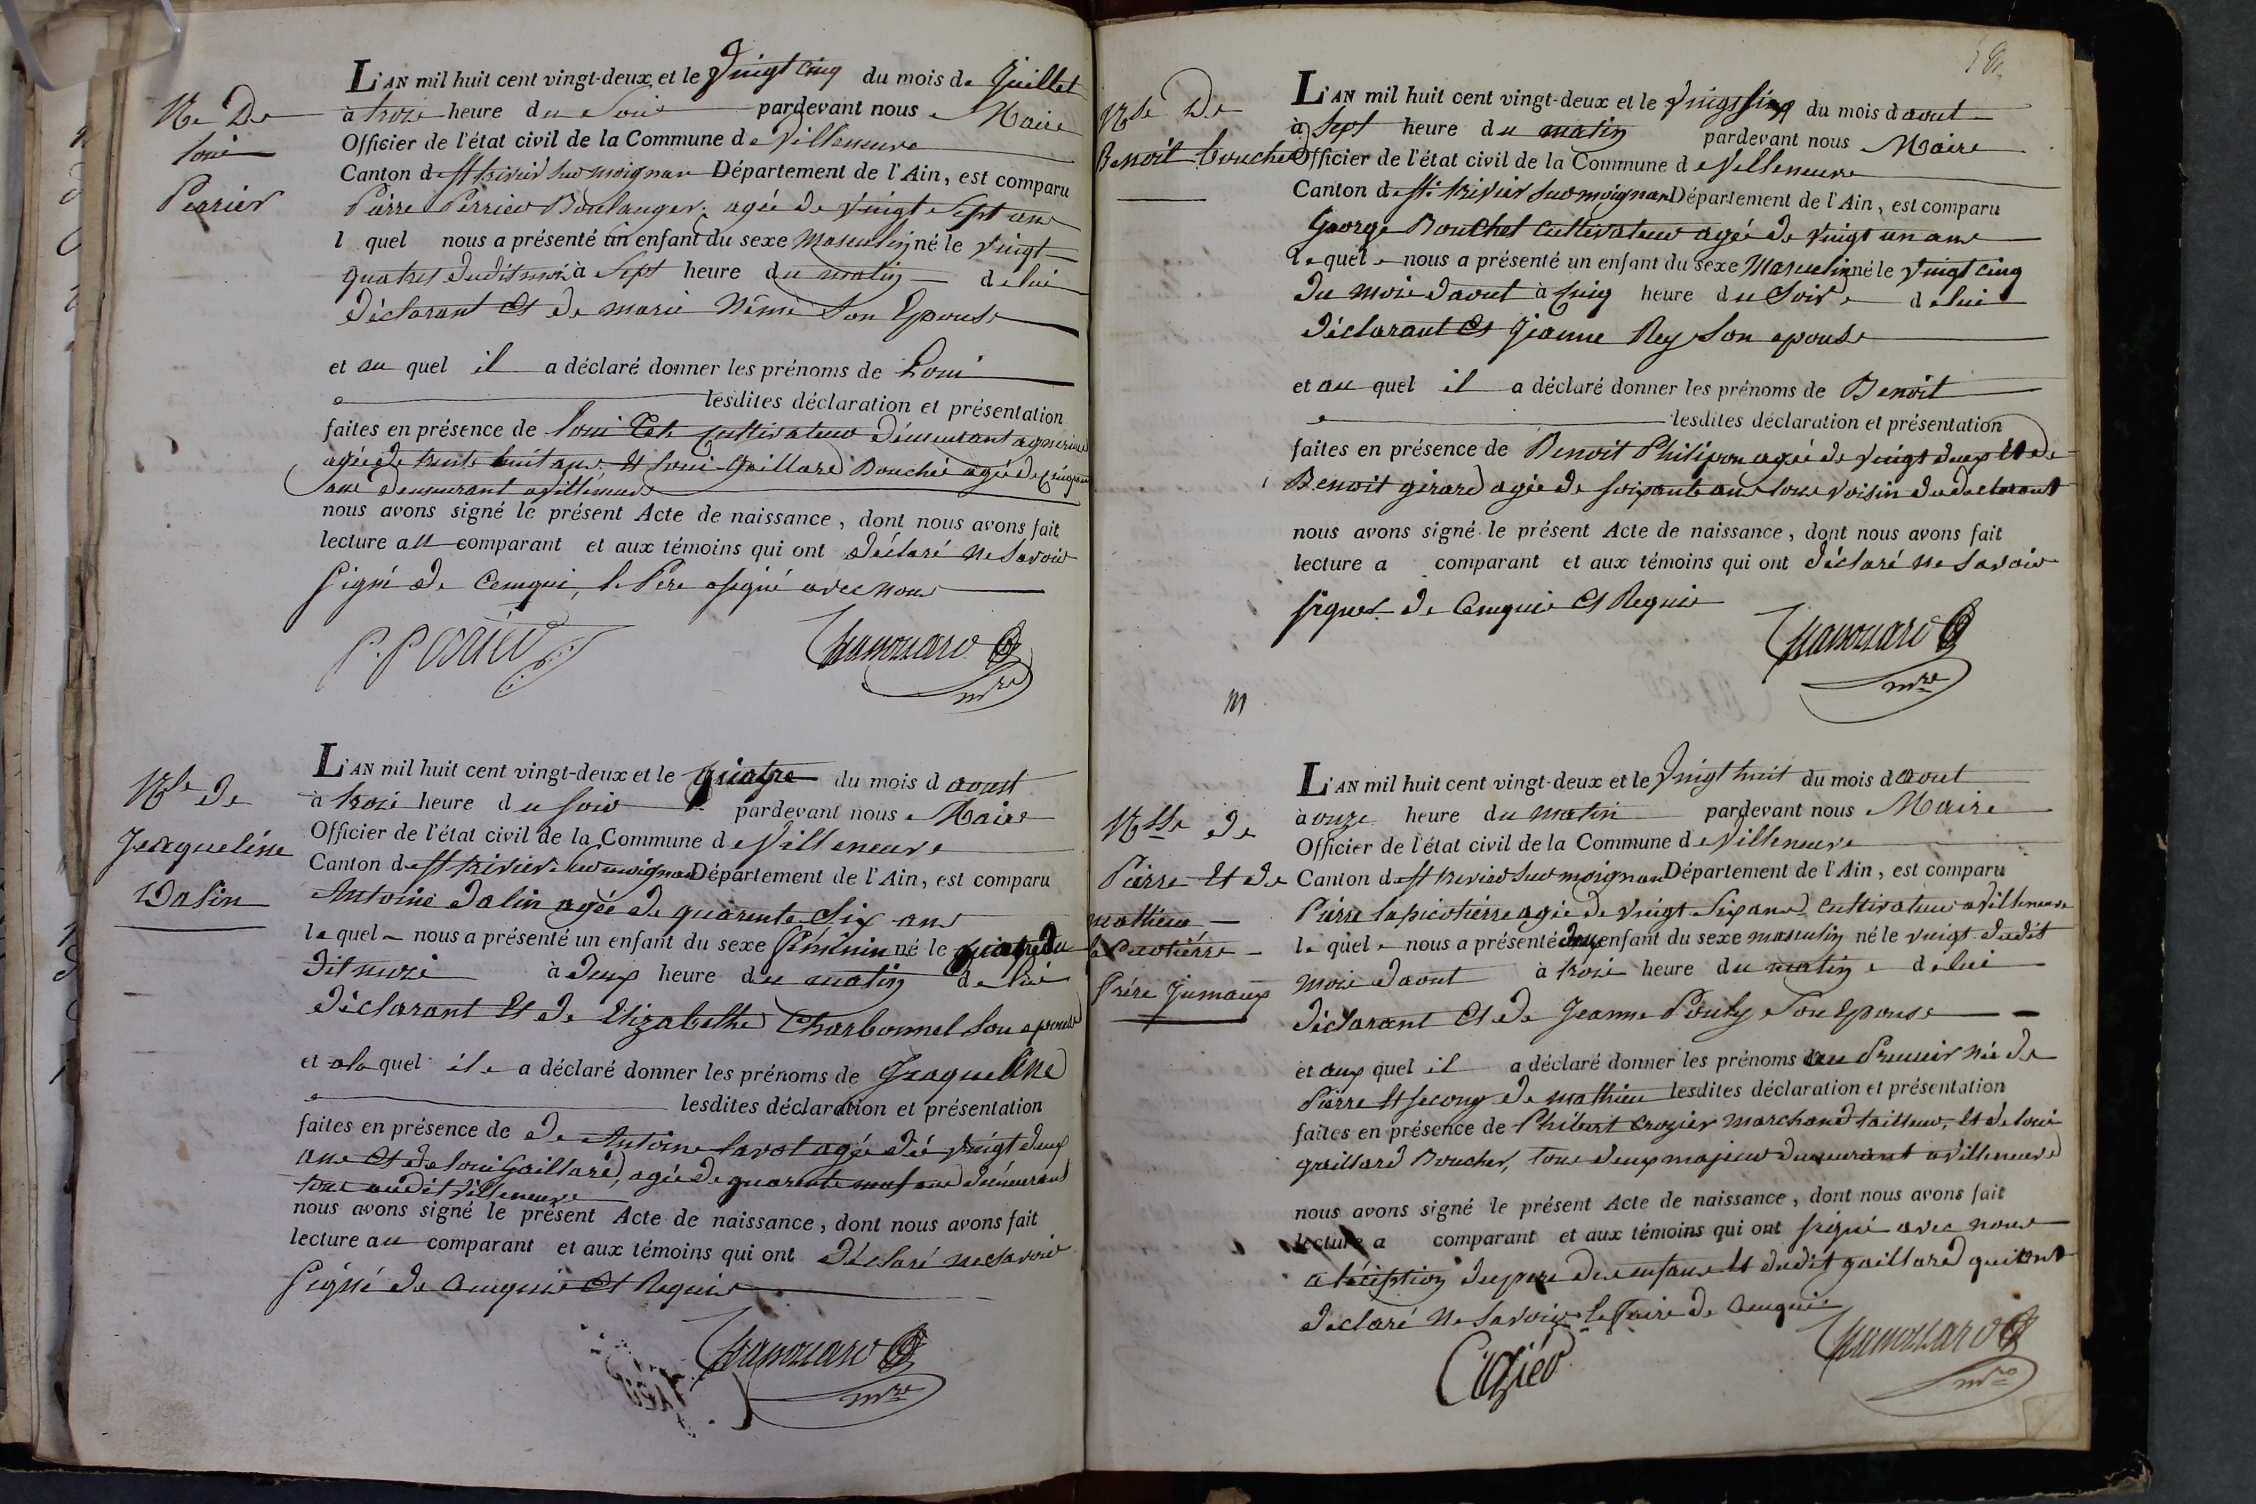 Ne De
Loui
Perrier
L'AN mil huit cent vingt-deux et le vingt cinq du mois de Juillet
à trois heure du Soir pardevant nous Maire
Officier de l'état civil de la Commune de Villeneuve
Canton de St trivier sur moignan Département de l'Ain, est comparu
Pierre Perrier Boulanger agée de vingt Sept ans
l quel nous a présenté un enfant du sexe Masculin né le vingt
quatres dudit mois à Sept heure du matin de lui
Déclarant Et De marie Son Epouse
et au quel il a déclaré donner les prénoms de Loui
lesdites déclaration et présentation
faites en présence de Loui cultivateur Démeurant
agée de trente huit ans Et Loui Gaillard Bouché agée de
ans Demeurant a Villeneuve
nous avons signé le présent Acte de naissance, dont nous avons fait
lecture au comparant et aux témoins qui ont Déclaré ne Savoir
Signé de ce enquis, le Père a signé avec nous
P. Perrier
mre
Nce De
Jeaqueline
Dalin
L'AN mil huit cent vingt-deux et le quatre du mois d aoust
à trois heure du soir pardevant nous Maire
Officier de l'état civil de la Commune de Villeneuve
Canton de St trivier sur moignan Département de l'Ain, est comparu
Antoine Dalin agée de quarente Six ans
le quel nous a présenté un enfant du sexe féminin né le quatre du
Dit mois à deux heure du matin de lui
Déclarant Et De Elizabethe Charbonnel Son epouse
et a la quel il a déclaré donner les prénoms de Jeaqueline
lesdites déclaration et présentation
faites en présence de De Antoine Lavot agée De vingt deux
ans Et de Loui Gaillard, agée de quarente neuf ans Démeurant
tous audit Villeneuve
nous avons signé le présent Acte de naissance, dont nous avons fait
lecture au comparant et aux témoins qui ont Déclaré ne Savoir
Signé de ce enquis Et Requis
mre
Nce De
Benoit Bouchet
L'AN mil huit cent vingt-deux et le vingt six du mois d aout
à Sept heure du matin pardevant nous Maire
Officier de l'état civil de la Commune de Villeneuve
Canton de St trivier sur moignan Département de l'Ain, est comparu
George Bouchet Cultivateur agée de vingt un ans
le quel nous a présenté un enfant du sexe Masculin né le vingt cinq
Du mois d'aout à cinq heure du Soir de lui
Déclarant Et Jeanne Rey Son epouse
et au quel il a déclaré donner les prénoms de Benoit
lesdites déclaration et présentation
faites en présence de Benoit Philipon agée de vingt deux Et de
Benoit girard agée de soixante ans tous voisin du declarant
nous avons signé le présent Acte de naissance, dont nous avons fait
lecture a comparant et aux témoins qui ont déclaré ne Savoir
signer de ce enquis Et Requis
mre
m
Nsse de
Pierre Et de
mathieu
la Picotierre
Frère Jumaux
L'AN mil huit cent vingt-deux et le vingt huit du mois d aout
à onze heure du matin pardevant nous Maire
Officier de l'état civil de la Commune de Villeneuve
Canton de St trivier sur moignan Département de l'Ain, est comparu
Pierre lapicotierre agée de vingt Six ans Cultivateur a Villeneuve
le quel nous a présenté deux enfant du sexe masculin né le vingt dudit
mois d'aout à trois heure du matin de lui
Déclarant Et de Jeanne Pouly Son Epouse
et aux quel il a déclaré donner les prénoms au Premier née de
Pierre Et second de mathieu lesdites déclaration et présentation
faites en présence de Philibert Crozier marchand tailleur, Et de Loui
gaillard Boucher, tous deux majeur Demeurant a Villeneuve
nous avons signé le présent Acte de naissance, dont nous avons fait
lecture a comparant et aux témoins qui ont signé avec nous
a l'éxception du pere des enfans Et dudit gaillard qui ont
declaré ne Savoir le faire de ce enquis
Crozier
mre